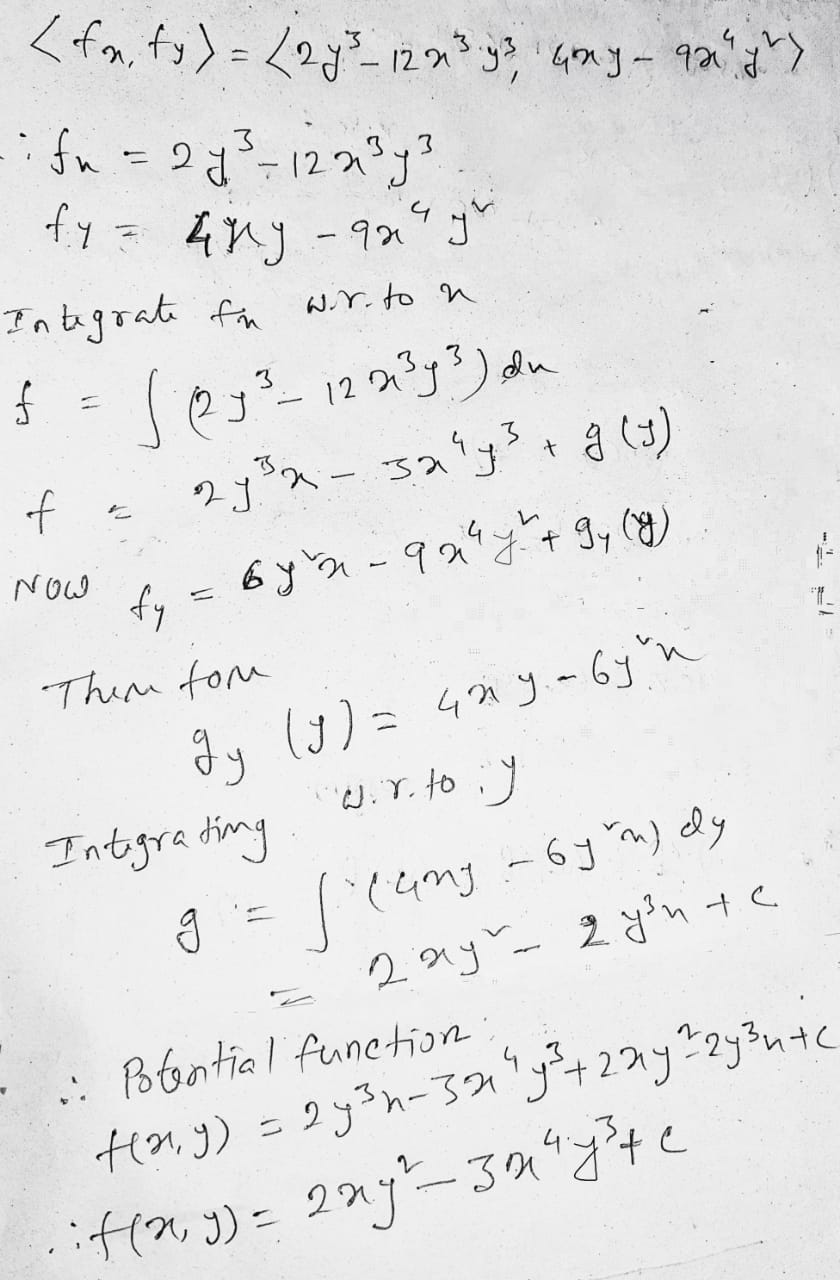 < fx, fy > = < 2y³ - 12x³y³, 4xy - 9x⁴y² >
∴ fx = 2y³ - 12x³y³
fy = 4xy - 9x⁴y²
Integrate fx w.r. to x
f = ∫ (2y³ - 12x³y³) dx
f = 2y³x - 3x⁴y³ + g(y)
NOW fy = 6y²x - 9x⁴y² + gy(y)
Therefore
gy (y) = 4xy - 6y²x
Integrating w.r. to y
g = ∫ (4xy - 6y²x) dy
= 2xy² - 2y³x + c
∴ Potential function
f(x, y) = 2y³x - 3x⁴y³ + 2xy² - 2y³x + c
∴ f(x, y) = 2xy² - 3x⁴y³ + c